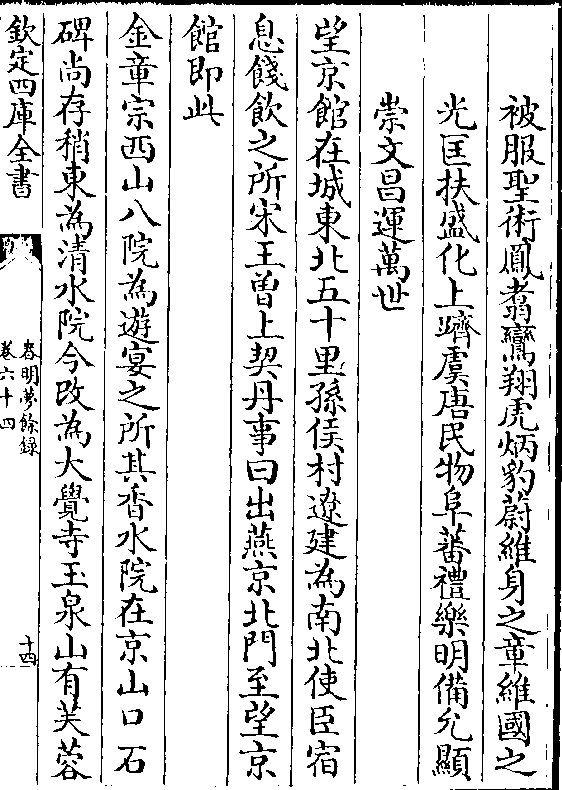 被服聖術鳳翥鸞翔虎炳豹蔚維身之章維國之
光匡扶盛化上躋虞唐民物阜蕃禮樂明備允顯
崇文昌運萬世
望京館在城東北五十里孫侯村遼建為南北使臣宿
息餞飲之所宋王曾上契丹事曰出燕京北門至望京
館即此
金章宗西山八院為遊宴之所其香水院在京山口石
碑尚存稍東為清水院今改為大覺寺玉泉山有芙蓉
欽定四庫全書
春明夢餘錄
卷六十四
十四